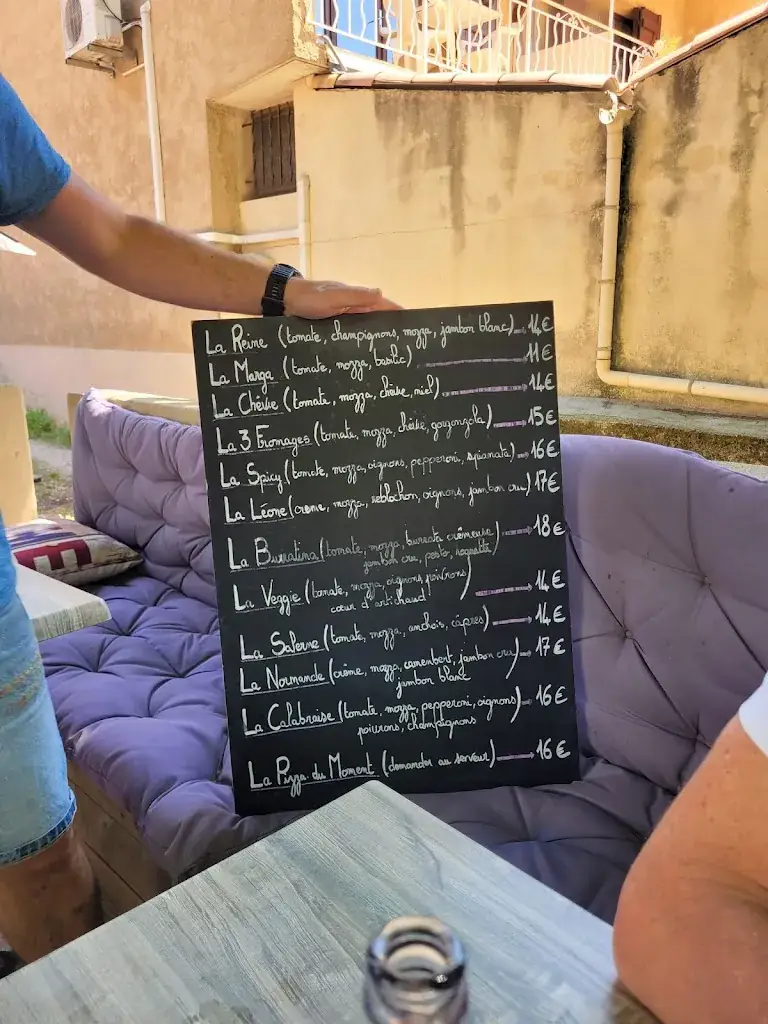 La Reine (tomate, champignons, mozza, jambon blanc) 14€
La Marga (tomate, mozza, basilic) 11€
La Chèvre (tomate, mozza, chèvre, miel) 14€
La 3 Fromages (tomate, mozza, chèvre, gorgonzola) 15€
La Spicy (tomate, mozza, oignons, pepperoni, spianata) 16€
La Léone (crème, mozza, reblochon, oignons, jambon cru) 17€
La Burratina (tomate, mozza, burrata crémeuse 18€
jambon cru, pesto, roquette)
La Veggie (tomate, mozza, oignons, poivrons) 14€
cœur d'artichaud
La Salerne (tomate, mozza, anchois, câpres) 14€
La Normande (crème, mozza, camembert, jambon cru) 17€
jambon blanc
La Calabraise (tomate, mozza, pepperoni, oignons) 16€
poivrons, champignons
La Pizza du Moment (demander au serveur) 16€